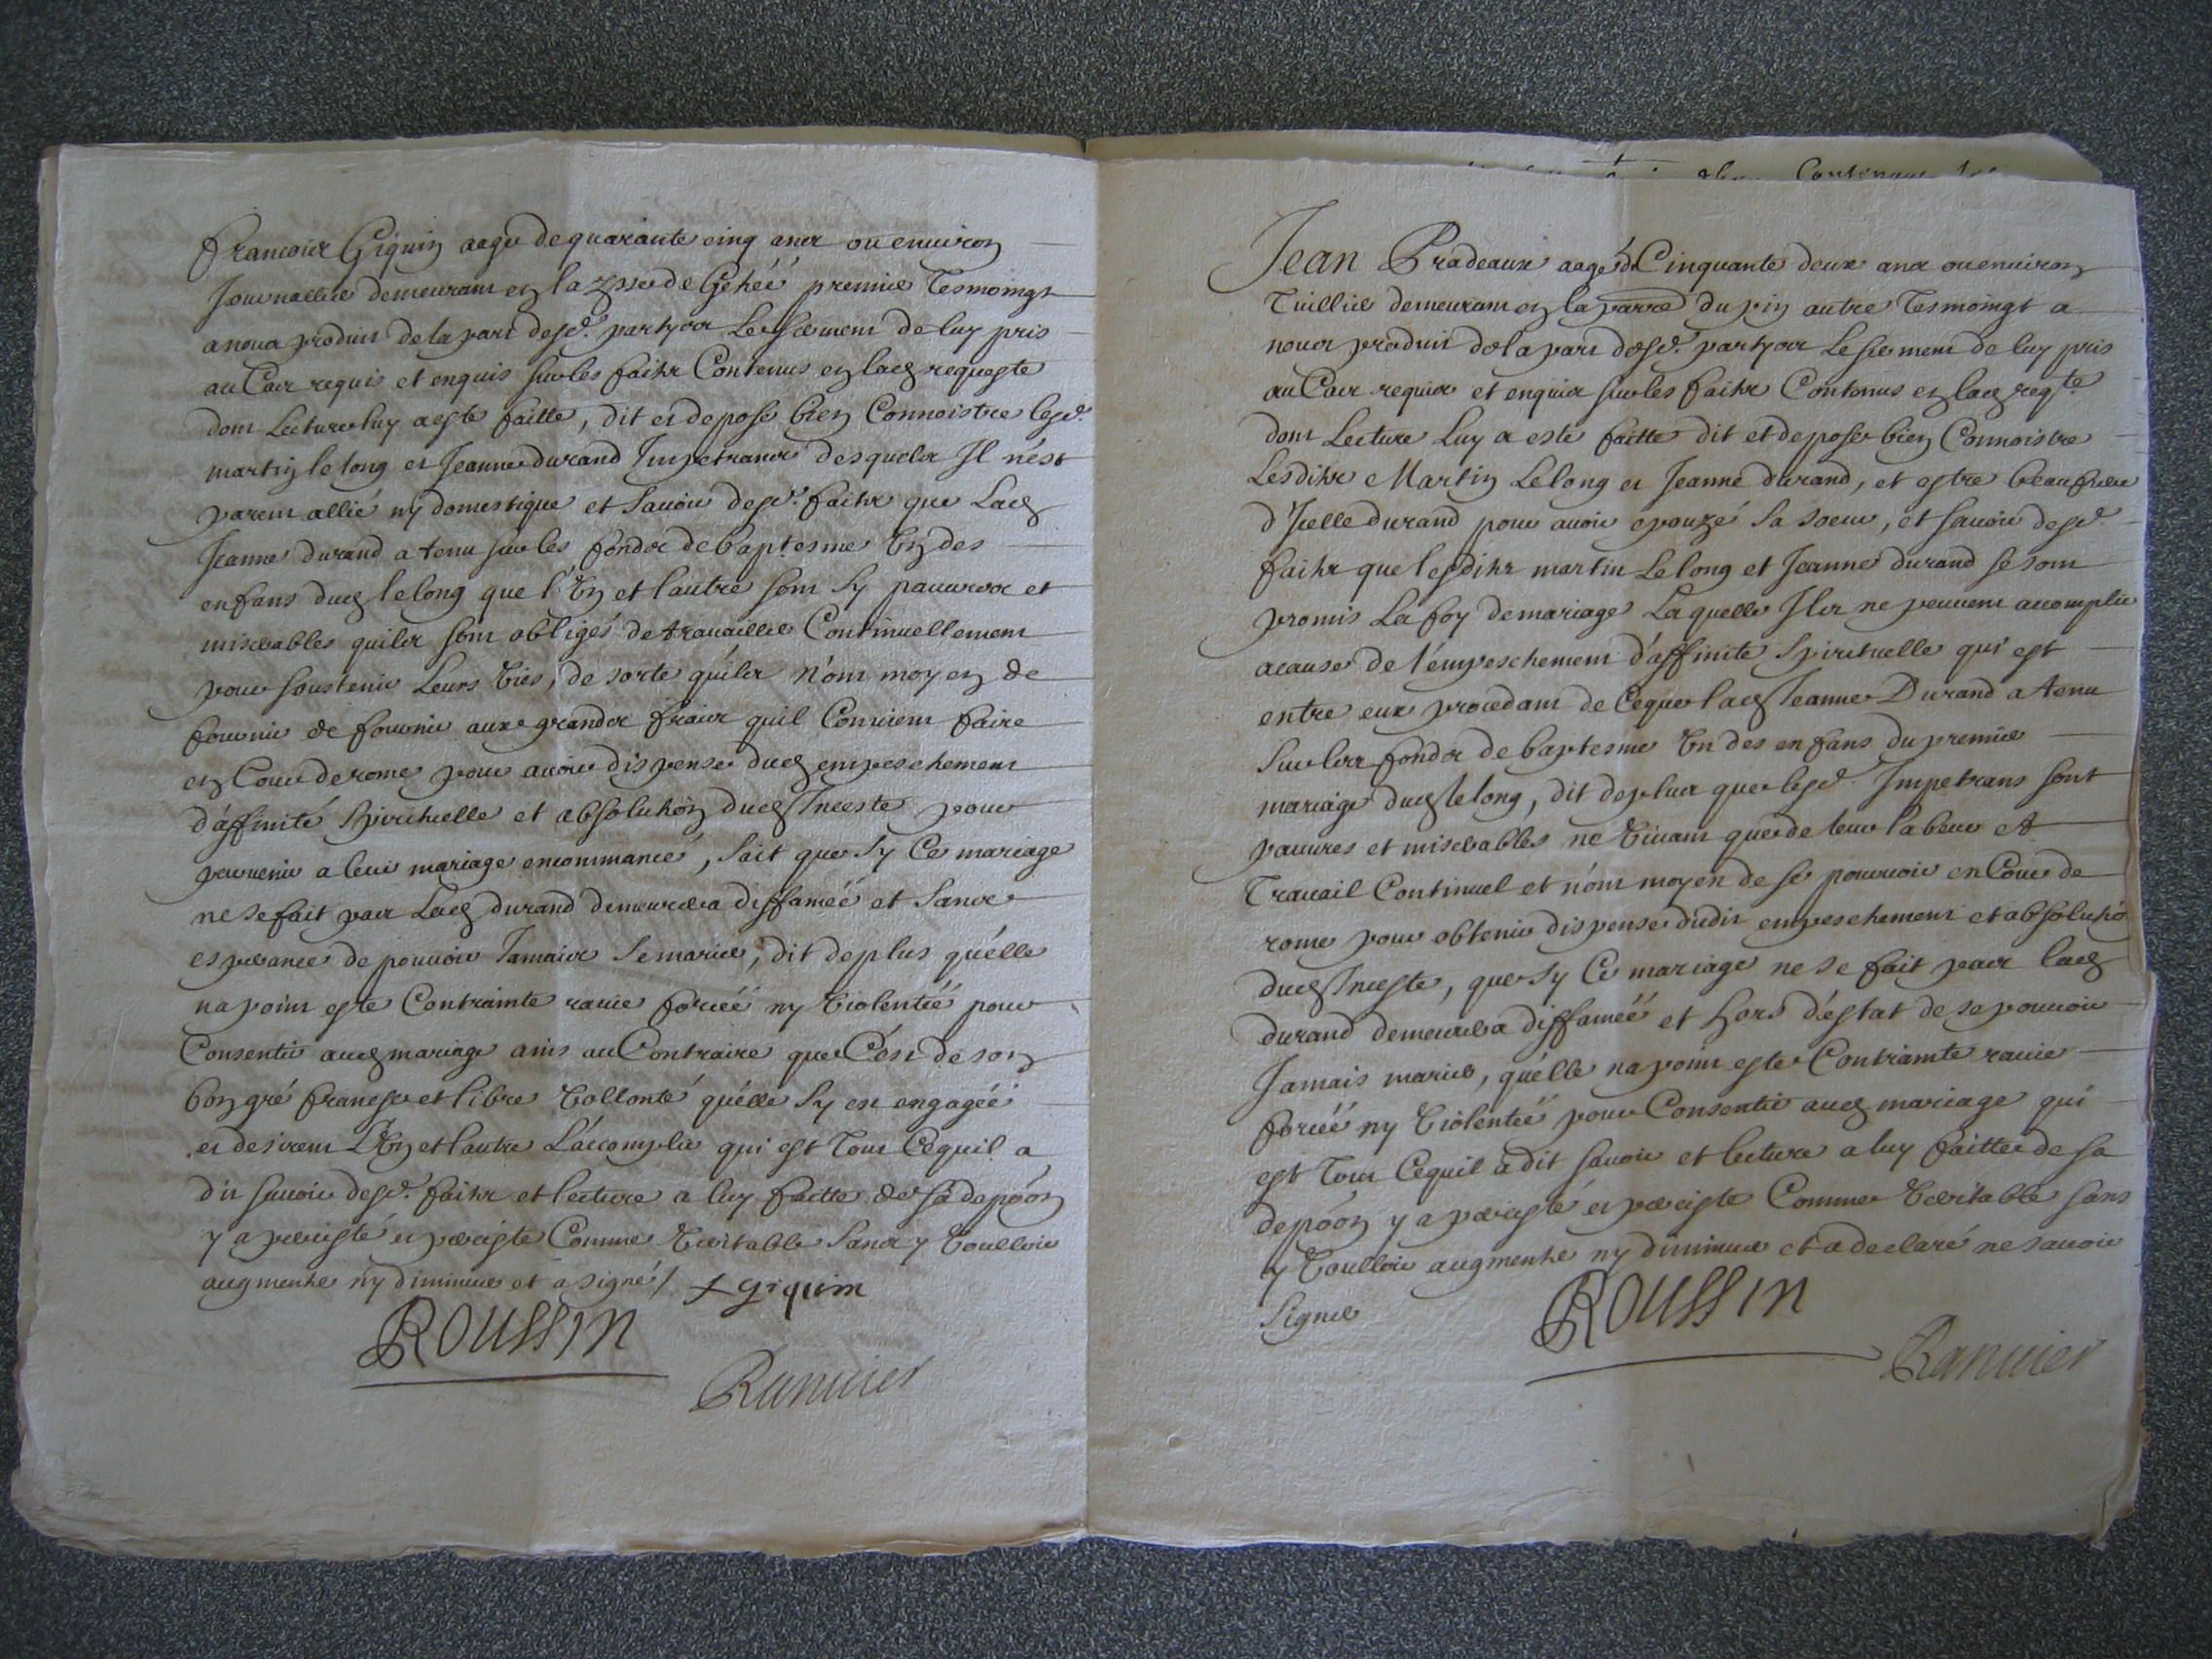 francois Giquin aagé de quarante cinq ans ou environ
Journallier demeurant en la psse de Gehéé premier tesmoingt
a nous produit de la part desd. partyes Le serment de luy pris
au Cas requis et enquis sur les faits Contenus en lad requeste
dont Lecture luy a este faitte, dit et depose bien Connoistre lesd.
martin le long et Jeanne durand Impetrans desquels Il nést
parent allié ny domestique et savoir desd. faits que Lad
Jeanne durand a tenu sur les fonds de baptesme Un des
enfans dud le long que l'Un et lautre sont sy pauvres et
miserables quils sont obligés de travailler Continuellement
pour soustenir Leurs Vies, de sorte quíls n'ont moyen de
fournir de fournir aux grands frais quil Convient faire
en Cour de rome pour avoir dispense dud empeschement
d'affinité Spirituelle et absolution dud Inceste pour
parvenir a leur mariage encommancé, sait que sy Ce mariage
ne se fait pas Lad durand demeurera diffaméé et sans
esperance de pouvoir Jamais se marier, dit de plus quélle
na point este Contrainte ravie forcéé ny Violentéé pour
Consentir aud mariage ains au Contraire que Cést de son
bon gré franche et libre Vollonté quélle sy est engagéé
et desirent L'Un et lautre L'accomplir qui est tout Cequil a
dit savoir desd. faits et lecture a luy faitte de sa depóon
y a persisté et persiste Comme Veritable sans y Voulloir
augmenter ny diminuer et a signé / + giquin
ROUSSIN
Ranvier
Jean Pradeaux aagé de Cinquante deux ans ou environ
Tuillier demeurant en la parre du pin autre tesmoingt a
nous produit de la part desd. partyes Le serment de luy pris
au Cas requis et enquis sur les faits Contenus en lad reqte
dont Lecture Luy a esté faitte dit et depose bien Connoistre
Lesdits Martin Le long et Jeanne durand, et estre beaufrere
d'Icelle durand pour avoir epouzé sa soeur, et savoir desd.
faits que lesdits martin Le long et Jeanne durand se sont
promis La foy de mariage Laquelle Ils ne peuvent accomplir
acause de l'émpeschement d'áffinité spirituelle qui est
entre eux procedant de Ceque lad Jeanne Durand a tenu
sur les fonds de baptesme Un des enfans du premier
mariage dud le long, dit de plus que lesd Impetrans sont
pauvres et miserables ne Vivant que de leur labeur et
travail Continuel et n'ont moyen de se pourvoir en Cour de
rome pour obtenir dispense dudit empeschement et absolutio
dud Inceste, que sy Ce mariage ne se fait pas lad
durand demeurera diffaméé et hors d'éstat de se pouvoir
Jamais marier, quélle na point este Contrainte ravie
forcéé ny Violentéé pour Consentir aud mariage qui
est tout Cequil a dit savoir et lecture a luy faitte de sa
depóon y a persisté et persiste Comme Veritable sans
y Voulloir augmenter ny diminuer et a declaré ne savoir
signer
ROUSSIN
Ranvier